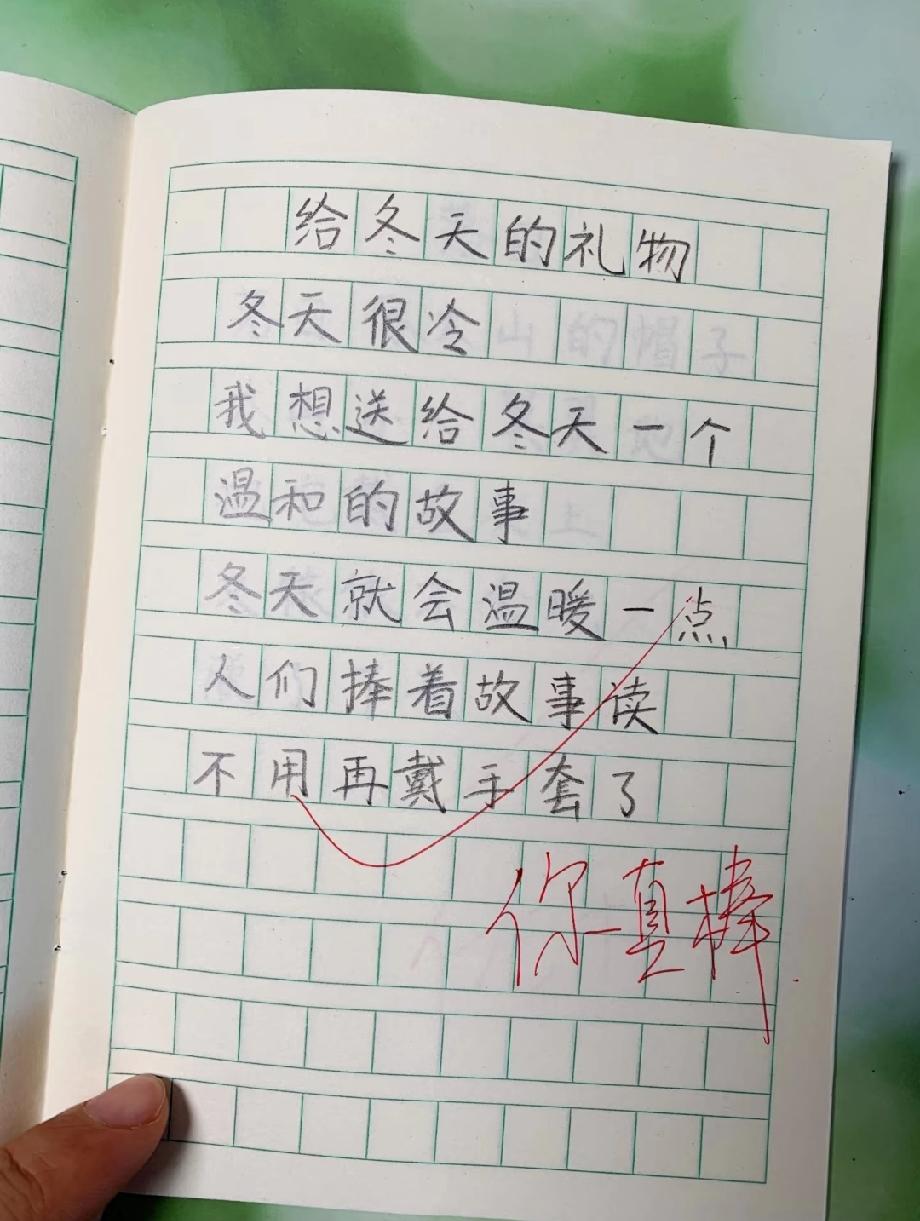 给冬天的礼物
冬天很冷
我想送给冬天一个
温和的故事
冬天就会温暖一点
人们捧着故事读
不用再戴手套了
你真棒